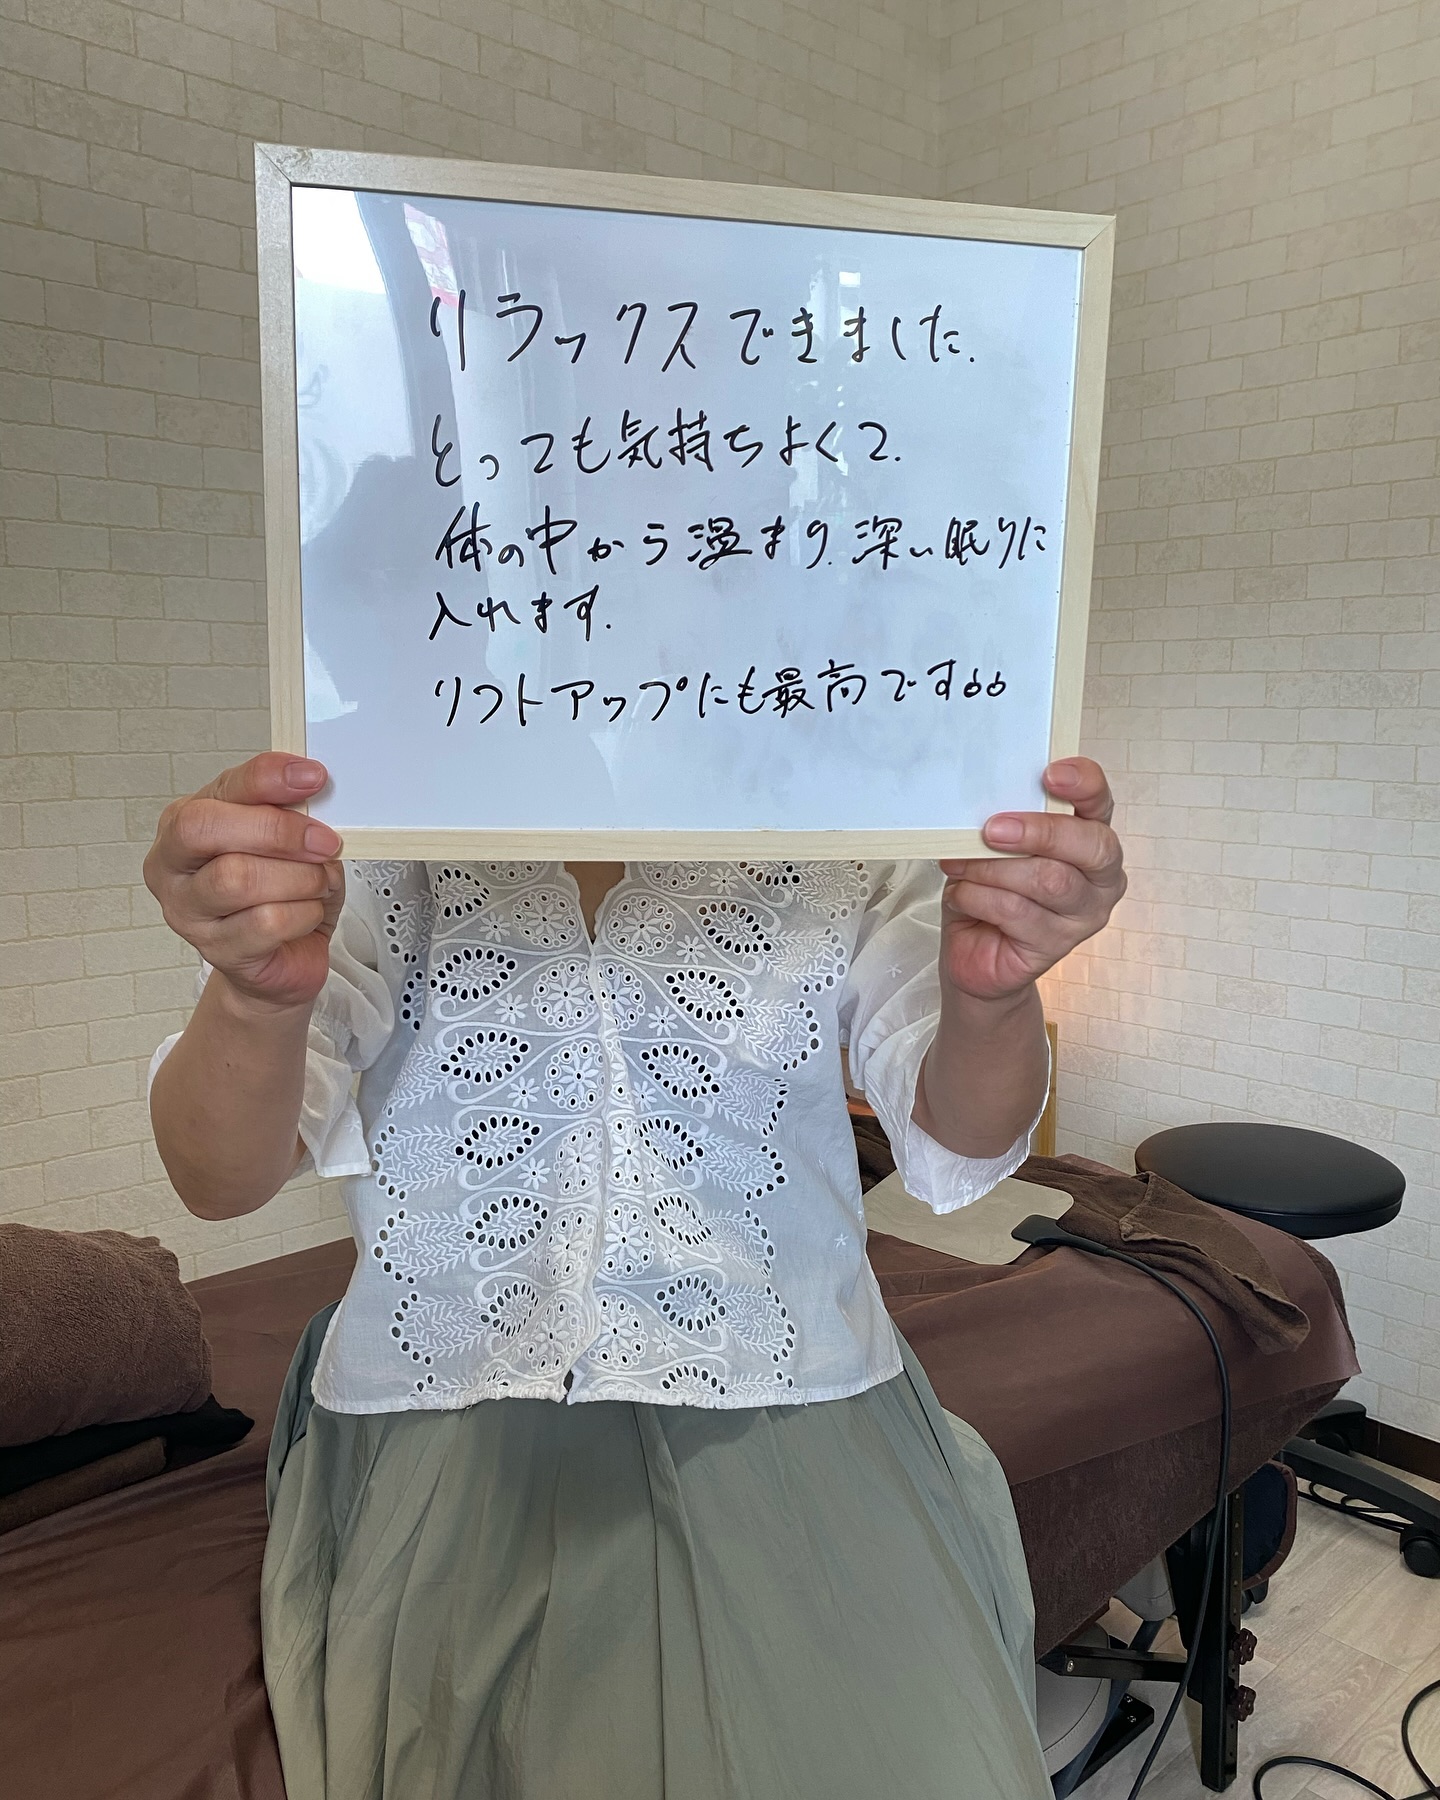 リラックスできました.
とっても気持ちよくて.
体の中から温まり.深い眠りに
入れます.
リフトアップにも最高です♂♂